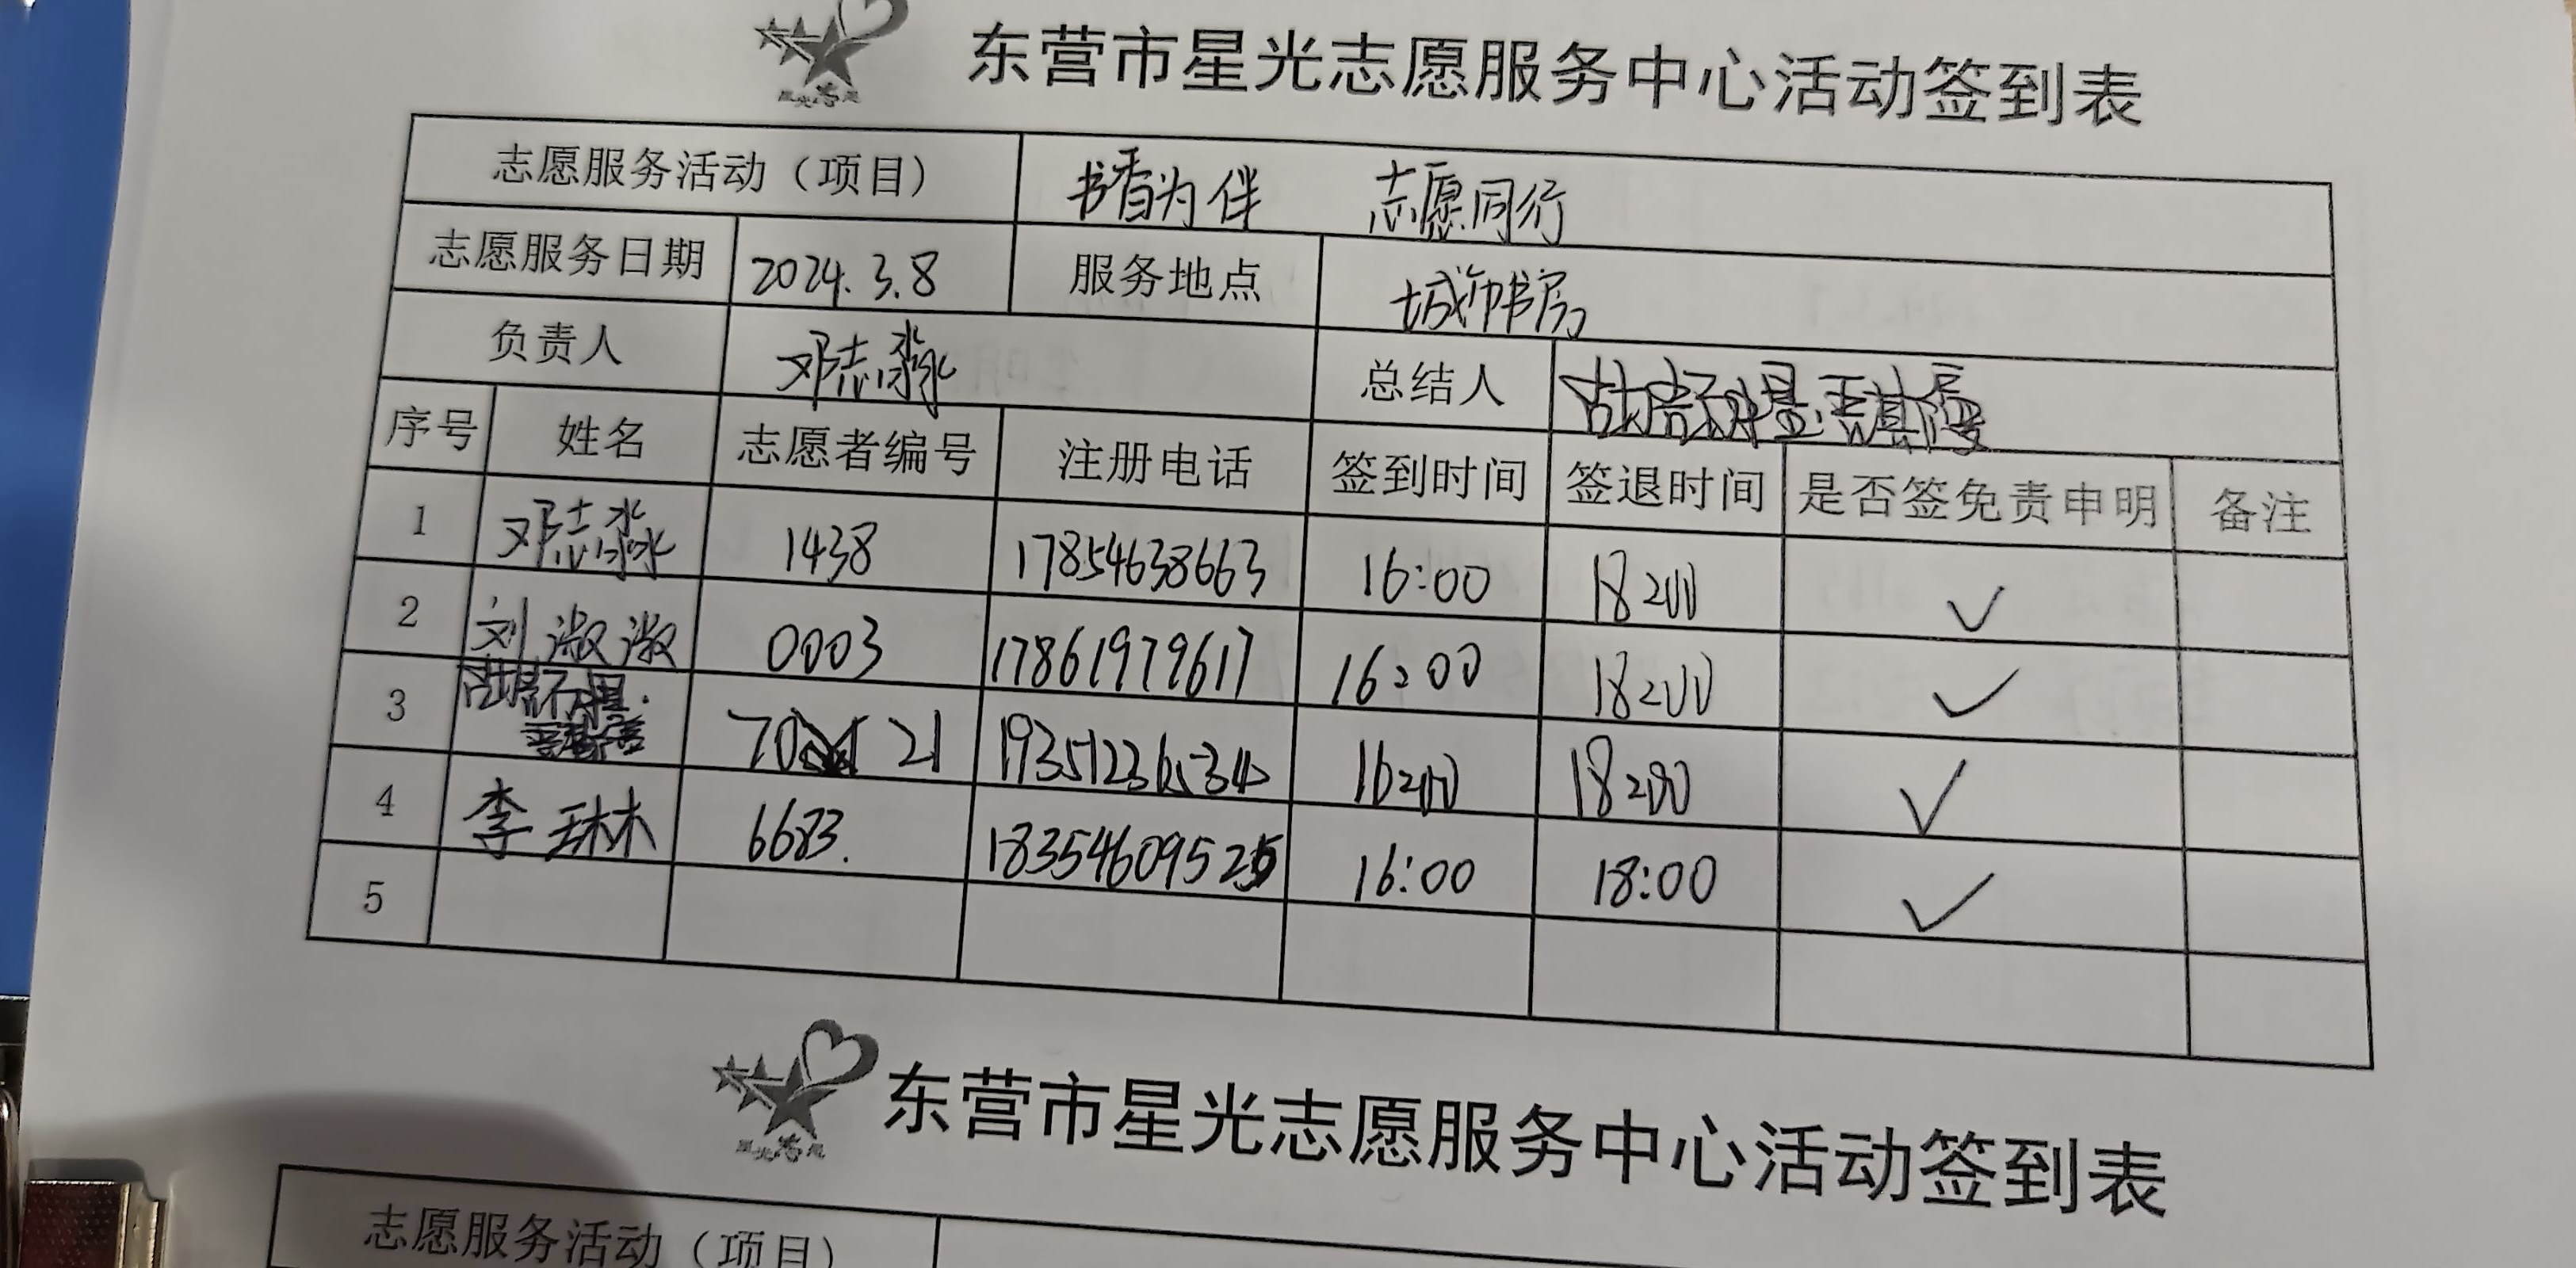 东营市星光志愿服务中心活动签到表
志愿服务活动（项目） 书香为伴 志愿同行
志愿服务日期 2024.3.8 服务地点 城市书房
负责人 邓志淼 总结人
序号 姓名 志愿者编号 注册电话 签到时间 签退时间 是否签免责申明 备注
1 邓志淼 1438 17854638663 16:00 18:00 ✓
2 刘淑淑 0003 17861979617 16:00 18:00 ✓
3 70 21 16:00 18:00 ✓
4 李琳 6683. 16:00 18:00 ✓
5
星光志愿
东营市星光志愿服务中心活动签到表
志愿服务活动（项目）